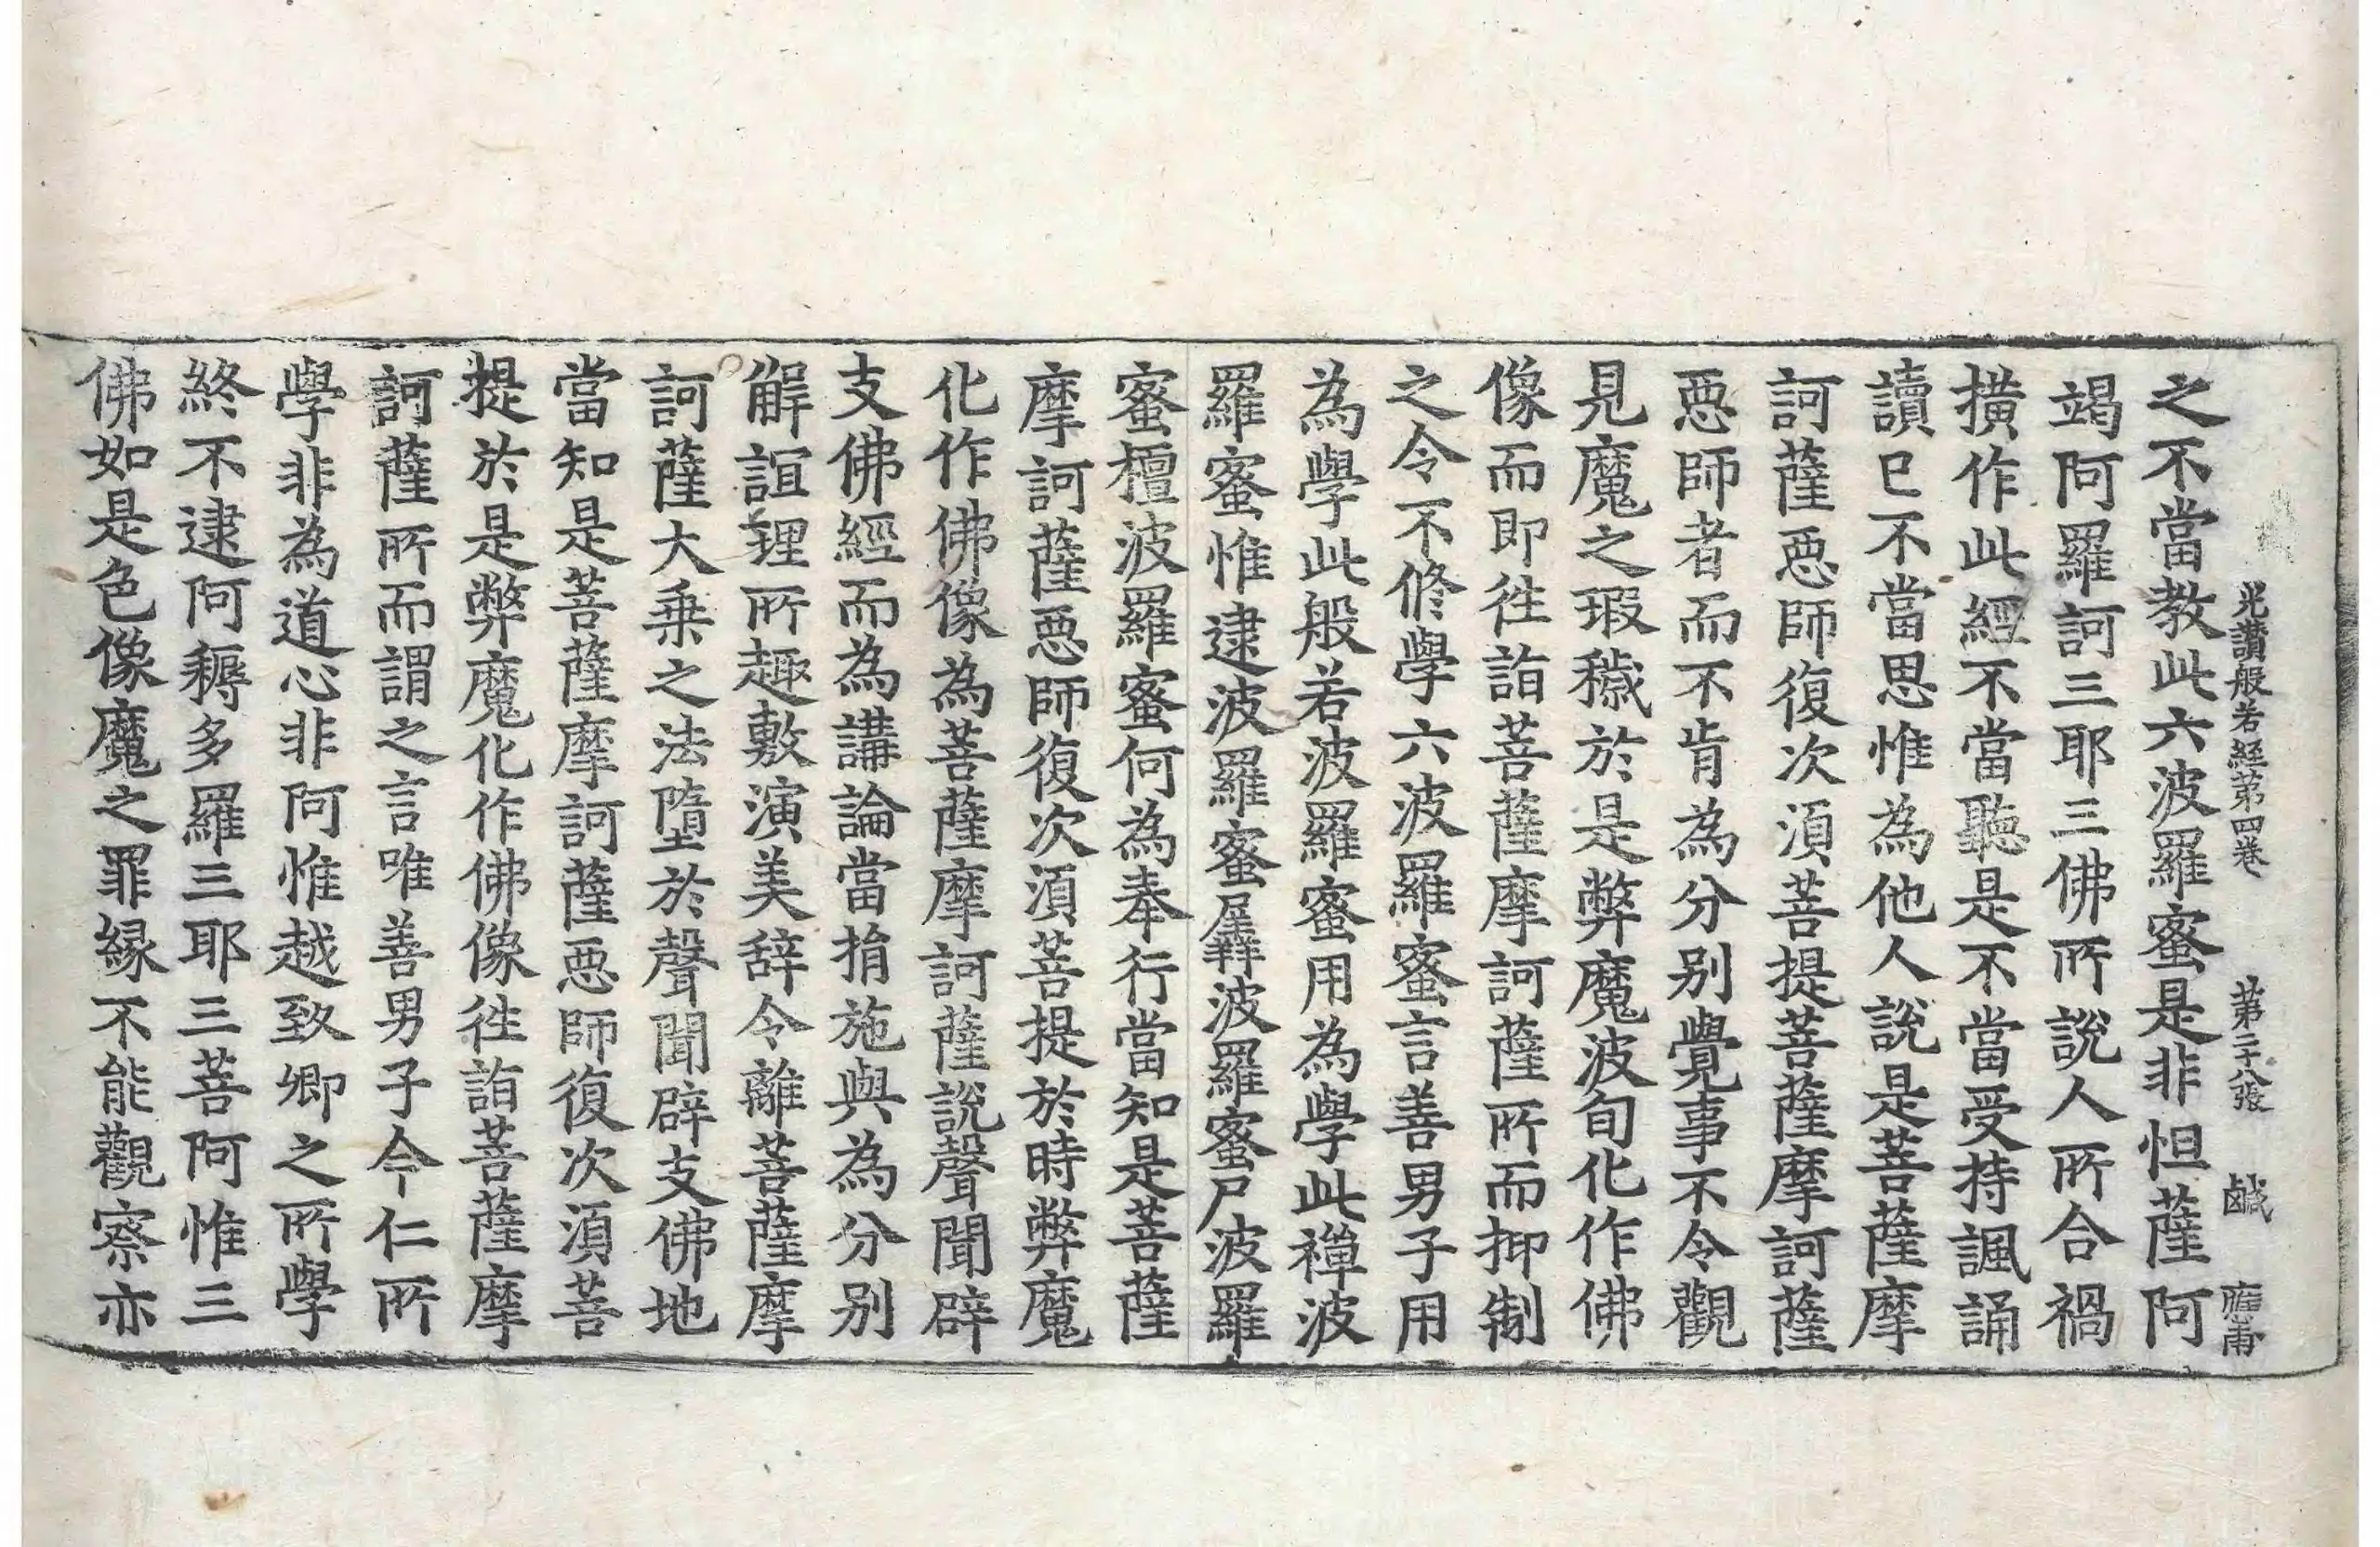 光讃般若經第四卷　第二十八張　鹹　應甫
之不當教此六波羅蜜是非怛薩阿
竭阿羅訶三耶三佛所說人所合禍
撗作此經不當聽是不當受持諷誦
讀已不當思惟為他人說是菩薩摩
訶薩惡師復次湏菩提菩薩摩訶薩
惡師者而不肯為分别覺事不令觀
見魔之瑕穢於是弊魔波旬化作佛
像而即往詣菩薩摩訶薩所而抑制
之令不修學六波羅蜜言善男子用
為學此般若波羅蜜用為學此禪波
羅蜜惟逮波羅蜜羼波羅蜜尸波羅
蜜檀波羅蜜何為奉行當知是菩薩
摩訶薩惡師復次湏菩提於時弊魔
化作佛像為菩薩摩訶薩說聲聞辟
支佛經而為講論當捐施與為分别
解誼理所趣敷演美辞令離菩薩摩
訶薩大乗之法墮於聲聞辟支佛地
當知是菩薩摩訶薩惡師復次湏菩
提於是弊魔化作佛像往詣菩薩摩
訶薩所而謂之言唯善男子今仁所
學非為道心非阿惟越致卿之所學
終不逮阿耨多羅三耶三菩阿惟三
佛如是色像魔之罪縁不能觀察亦